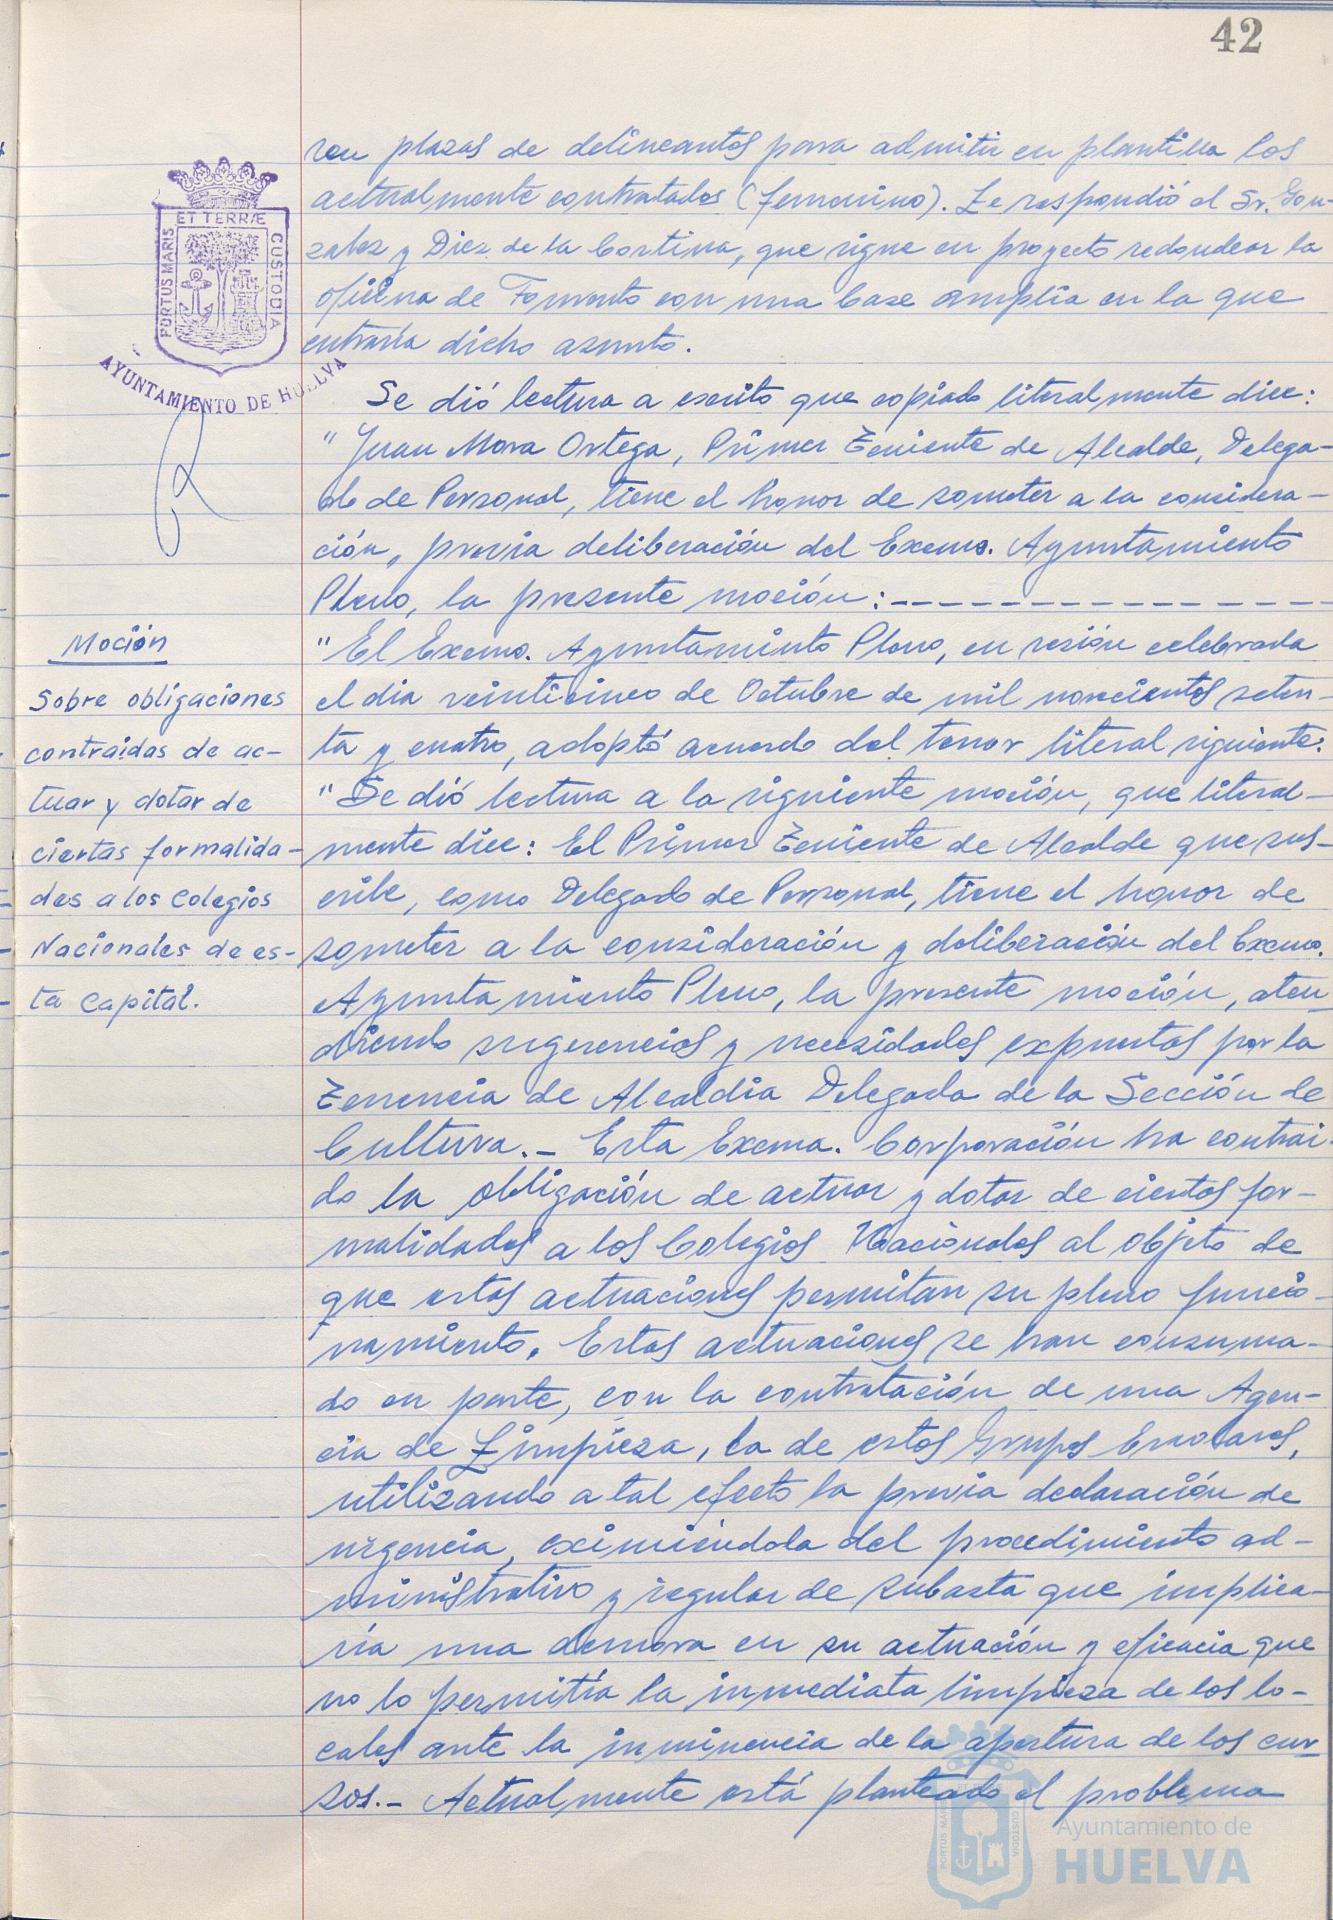 42
ran plazas de delineantes para admitir en plantilla los
actualmente contratados (femenino). Le respondió el Sr. Gon-
zalez y Diez de la Cortina, que sigue en proyecto redondear la
oficina de Fomento con una base amplia en la que
entraría dicho asunto.
Se dió lectura a escrito que copiado literalmente dice:
"Juan Mora Ortega, Primer Teniente de Alcalde, Delega-
do de Personal, tiene el honor de someter a la considera-
ción, previa deliberación del Excmo. Ayuntamiento
Pleno, la presente moción:
"El Excmo. Ayuntamiento Pleno, en sesión celebrada
el dia veinticinco de Octubre de mil novecientos seten-
ta y cuatro, adoptó acuerdo del tenor literal siguiente:
"Se dió lectura a la siguiente moción, que literal-
mente dice: El Primer Teniente de Alcalde que sus-
cribe, como Delegado de Personal, tiene el honor de
someter a la consideración y deliberación del Excmo.
Ayuntamiento Pleno, la presente moción, aten
diendo sugerencias y necesidades expuestas por la
Tenencia de Alcaldia Delegada de la Sección de
Cultura.- Esta Excma. Corporación ha contrai-
do la obligación de actuar y dotar de ciertas for-
malidades a los Colegios Nacionales al objeto de
que estas actuaciones permitan su pleno funcio-
namiento. Estas actuaciones se han consuma-
do en parte, con la contratación de una Agen-
cia de Limpieza, la de estos Grupos Escolares,
utilizando a tal efecto la previa declaración de
urgencia, eximiéndola del procedimiento ad-
ministrativo y regular de subasta que implica-
ría una demora en su actuación y eficacia que
no lo permitía la inmediata limpieza de los lo-
cales ante la inminencia de la apertura de los cur-
sos.- Actualmente está planteado el problema
Moción
Sobre obligaciones
contraidas de ac-
tuar y dotar de
ciertas formalida-
des a los Colegios
Nacionales de es-
ta Capital.
PORTUS MARIS ET TERRÆ CUSTODIA
AYUNTAMIENTO DE HUELVA
Ayuntamiento de
HUELVA